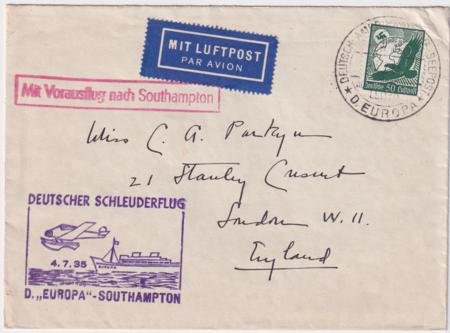 MIT LUFTPOST
PAR AVION
Mit Vorausflug nach Southampton
DEUTSCH
SEEPOST
D. EUROPA
Deutsche 50 Luftpost
Miss C. A. Partyn
21 Stanley Crescent
London W. 11.
England
DEUTSCHER SCHLEUDERFLUG
EUROPA
4.7.35
D. „EUROPA"-SOUTHAMPTON